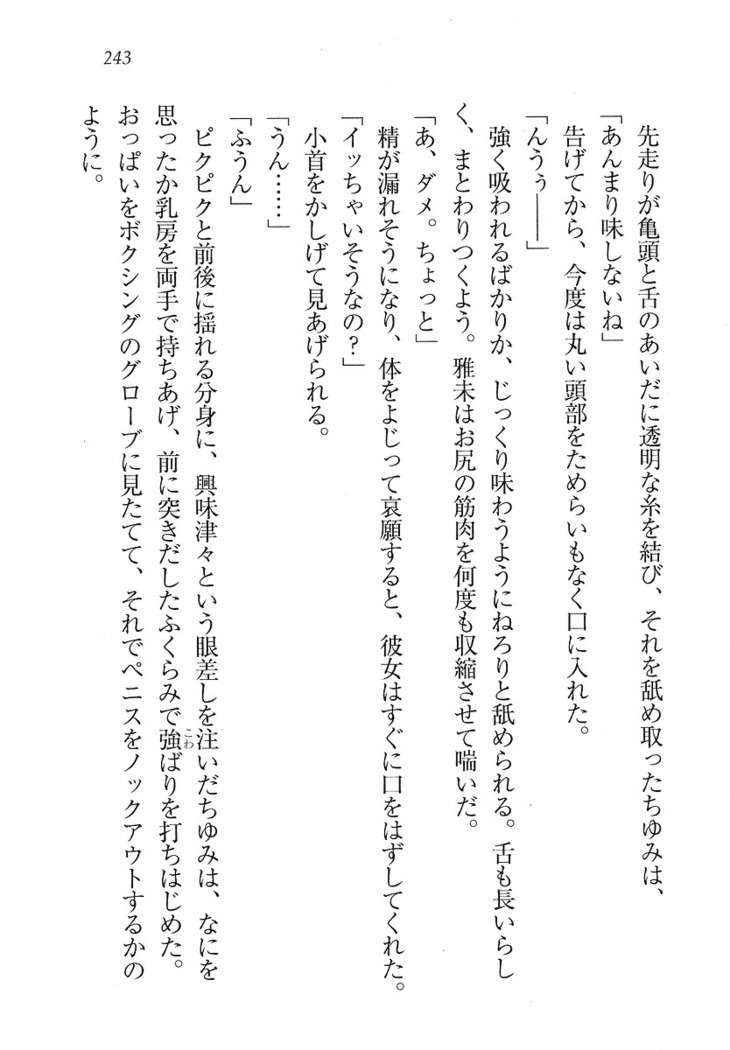 243
先走りが亀頭と舌のあいだに透明な糸を結び、それを舐め取ったちゆみは、
「あんまり味しないね」
告げてから、今度は丸い頭部をためらいもなく口に入れた。
「んうぅ――」
強く吸われるばかりか、じっくり味わうようにねろりと舐められる。舌も長いらし
く、まとわりつくよう。雅未はお尻の筋肉を何度も収縮させて喘いだ。
「あ、ダメ。ちょっと」
精が漏れそうになり、体をよじって哀願すると、彼女はすぐに口をはずしてくれた。
「イッちゃいそうなの？」
小首をかしげて見あげられる。
「うん……」
「ふうん」
ピクピクと前後に揺れる分身に、興味津々という眼差しを注いだちゆみは、なにを
思ったか乳房を両手で持ちあげ、前に突きだしたふくらみで強こわばりを打ちはじめた。
おっぱいをボクシングのグローブに見たてて、それでペニスをノックアウトするかの
ように。